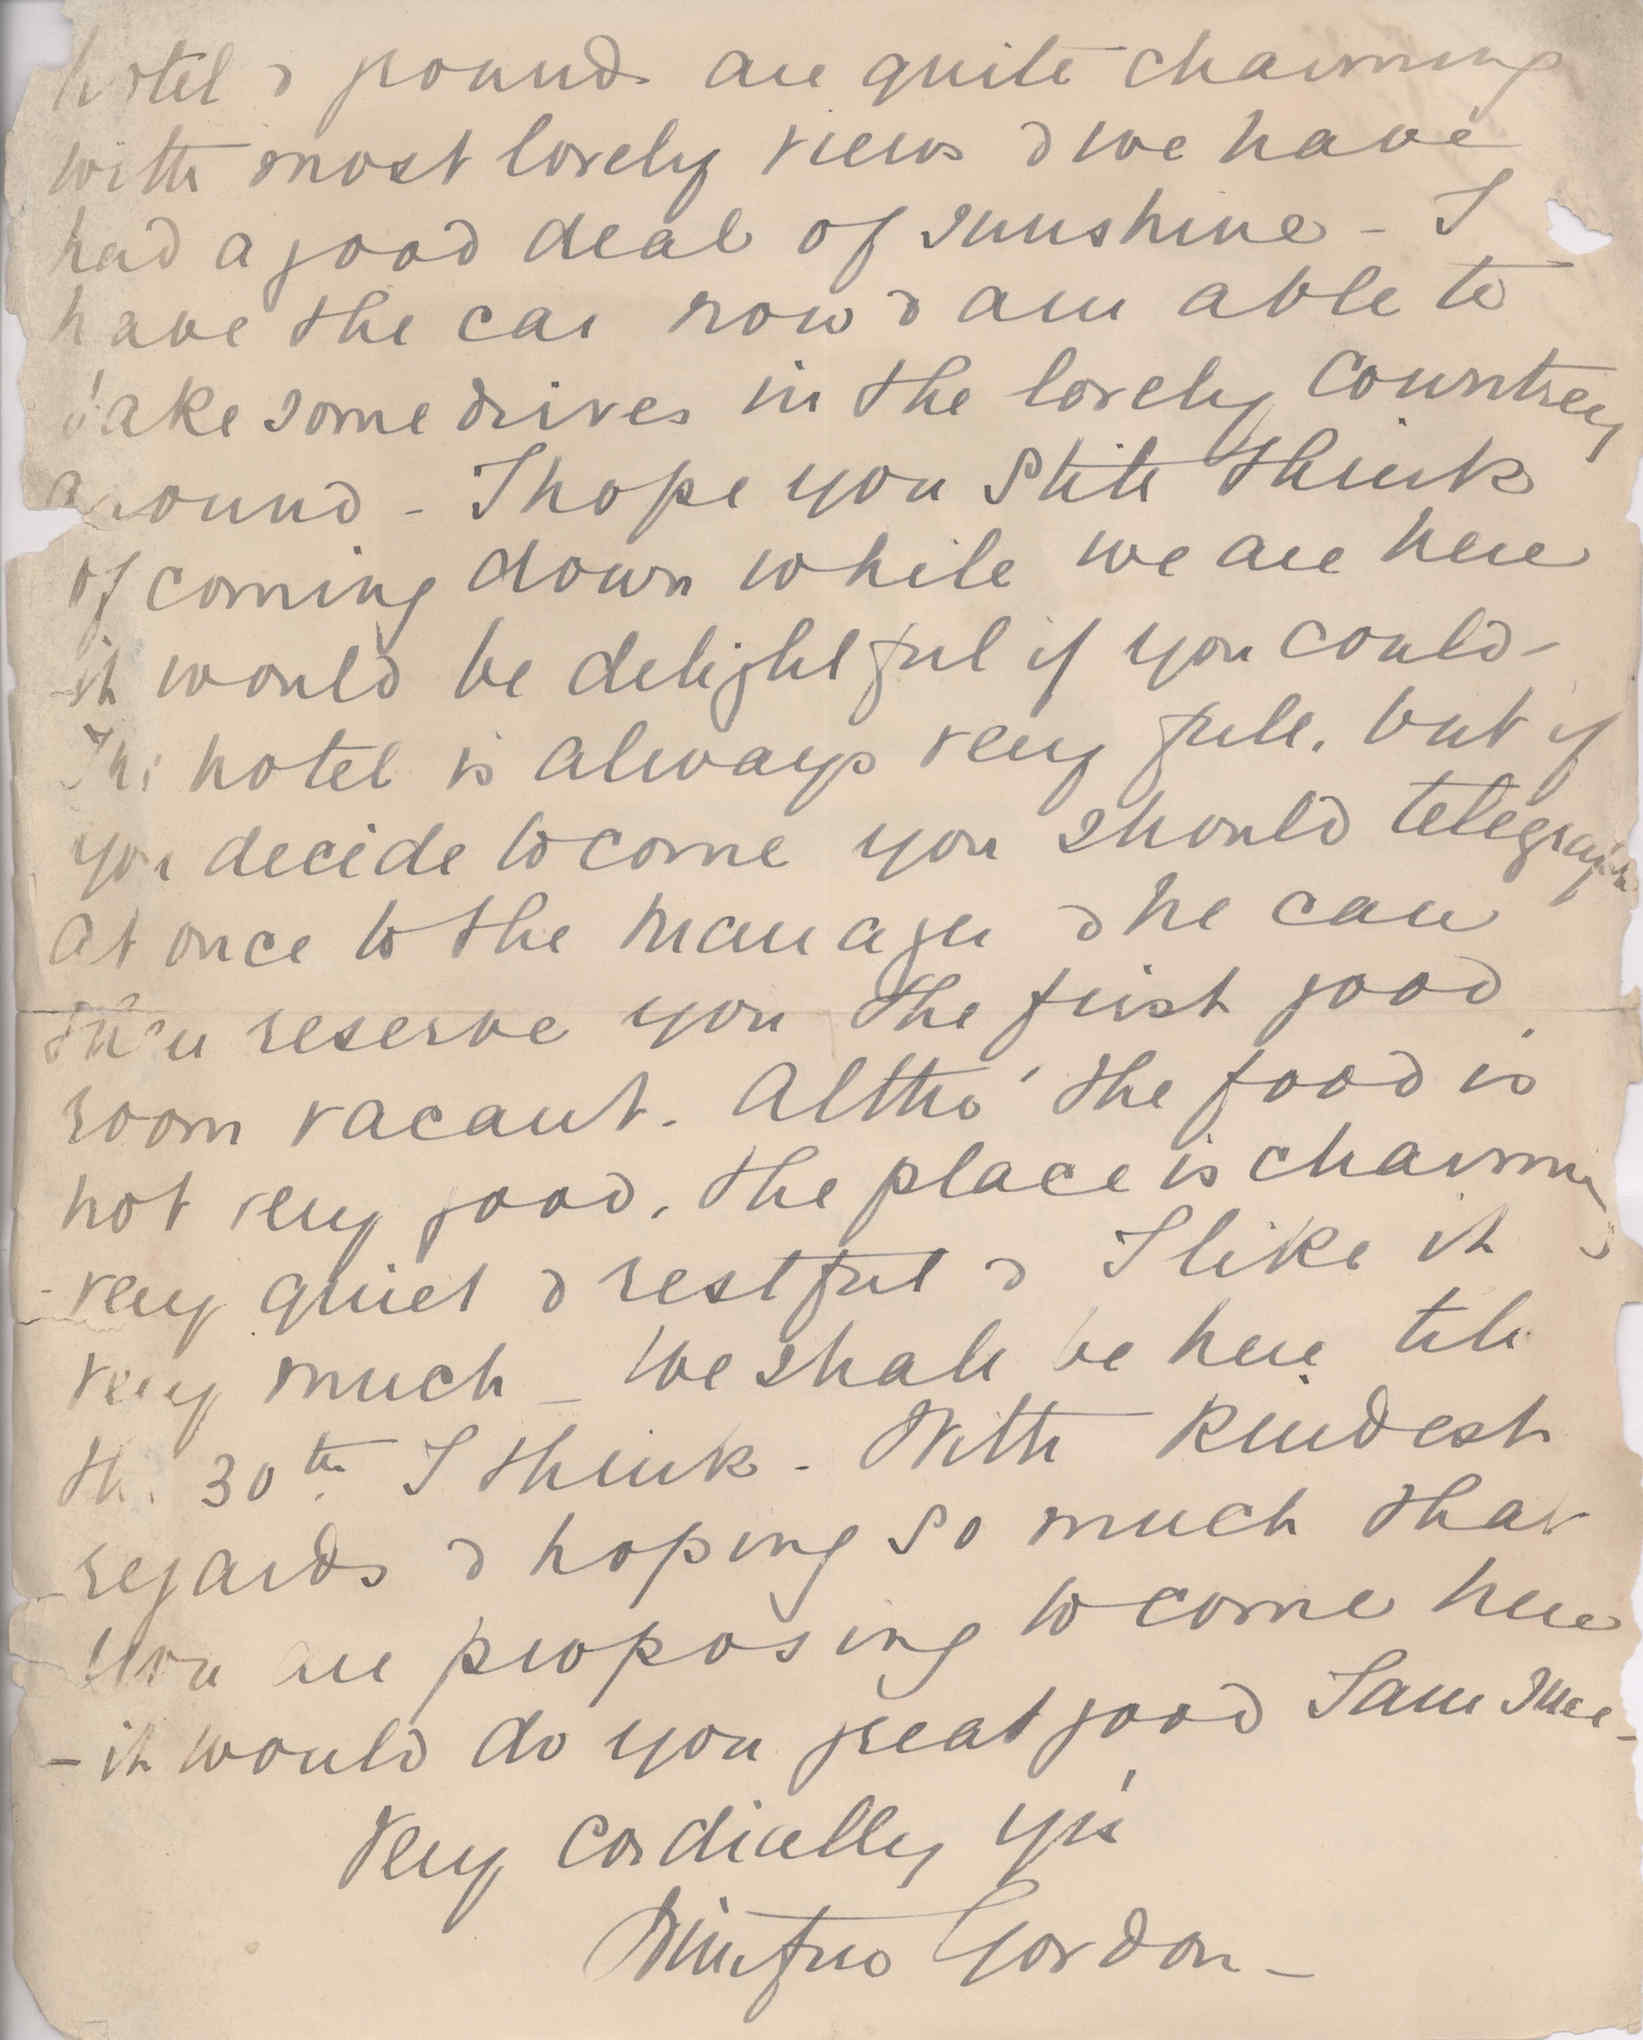 hotel & grounds are quite charming
with most lovely views & we have
had a good deal of sunshine - I
have the car now & am able to
take some drives in the lovely country
around - I hope you still think
of coming down while we are here
it would be delightful if you could -
The hotel is always very full, but if
you decide to come you should telegraph
at once to the manager & he can
then reserve you the first good
room vacant. Altho' the food is
not very good, the place is charming
very quiet & restful & I like it
very much - We shall be here till
the 30th I think - With kindest
regards & hoping so much that
you are proposing to come here
- it would do you great good I am sure -
Very cordially yrs
Gordon -